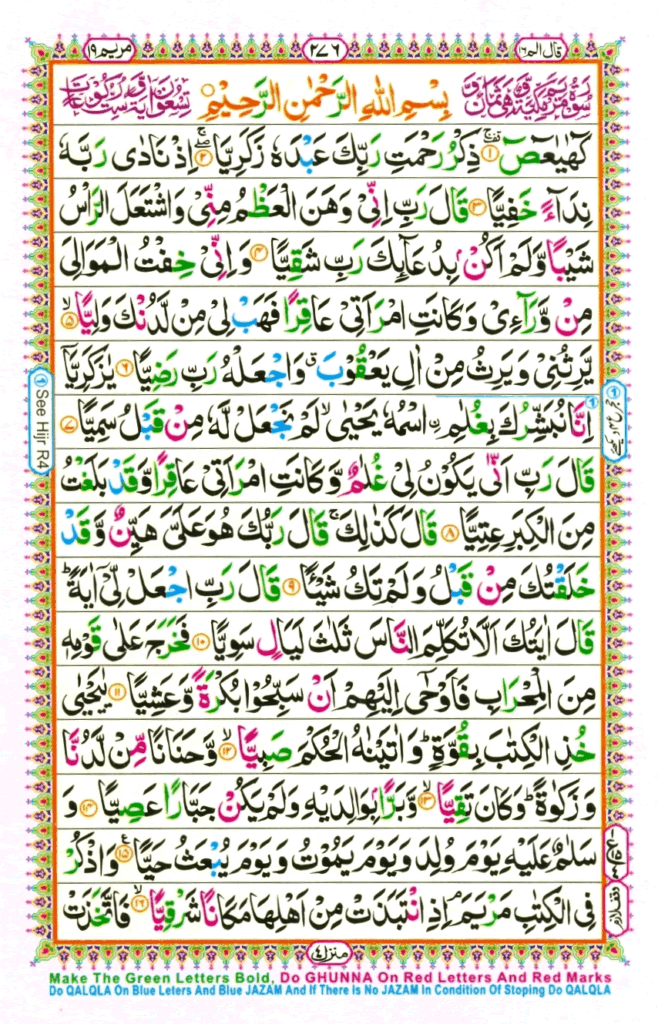 قال الم ١٦
٢٧٦
مريم ١٩
سورة مريم مكية وهي ثمان وتسعون آية وست ركوعات
بِسْمِ اللّٰهِ الرَّحْمٰنِ الرَّحِيْمِ
كٓهٰيٰعٓصٓ ۚ‏ ١ ذِكْرُ رَحْمَتِ رَبِّكَ عَبْدَهٗ زَكَرِيَّا ۖۚ ٢ اِذْ نَادٰى رَبَّهٗ
نِدَآءً خَفِيًّا ٣ قَالَ رَبِّ اِنِّيْ وَهَنَ الْعَظْمُ مِنِّيْ وَاشْتَعَلَ الرَّاْسُ
شَيْبًا وَّلَمْ اَكُنْۢ بِدُعَآئِكَ رَبِّ شَقِيًّا ٤ وَاِنِّيْ خِفْتُ الْمَوَالِيَ
مِنْ وَّرَآءِيْ وَكَانَتِ امْرَاَتِيْ عَاقِرًا فَهَبْ لِيْ مِنْ لَّدُنْكَ وَلِيًّا ۙ ٥
يَّرِثُنِيْ وَيَرِثُ مِنْ اٰلِ يَعْقُوْبَ ۖ وَاجْعَلْهُ رَبِّ رَضِيًّا ٦ يٰزَكَرِيَّآ
اِنَّا نُبَشِّرُكَ بِغُلٰمِ ۨاسْمُهٗ يَحْيٰى ۙ لَمْ نَجْعَلْ لَّهٗ مِنْ قَبْلُ سَمِيًّا ٧
قَالَ رَبِّ اَنّٰى يَكُوْنُ لِيْ غُلٰمٌ وَّكَانَتِ امْرَاَتِيْ عَاقِرًا وَّقَدْ بَلَغْتُ
مِنَ الْكِبَرِ عِتِيًّا ٨ قَالَ كَذٰلِكَ ۚ قَالَ رَبُّكَ هُوَ عَلَيَّ هَيِّنٌ وَّقَدْ
خَلَقْتُكَ مِنْ قَبْلُ وَلَمْ تَكُ شَيْـًٔا ٩ قَالَ رَبِّ اجْعَلْ لِّيْٓ اٰيَةً ؕ
قَالَ اٰيَتُكَ اَلَّا تُكَلِّمَ النَّاسَ ثَلٰثَ لَيَالٍ سَوِيًّا ١٠ فَخَرَجَ عَلٰى قَوْمِهٖ
مِنَ الْمِحْرَابِ فَاَوْحٰٓى اِلَيْهِمْ اَنْ سَبِّحُوْا بُكْرَةً وَّعَشِيًّا ١١ يٰيَحْيٰى
خُذِ الْكِتٰبَ بِقُوَّةٍ ؕ وَاٰتَيْنٰهُ الْحُكْمَ صَبِيًّا ۙ ١٢ وَّحَنَانًا مِّنْ لَّدُنَّا
وَزَكٰوةً ؕ وَكَانَ تَقِيًّا ۙ ١٣ وَّبَرًّاۢ بِوَالِدَيْهِ وَلَمْ يَكُنْ جَبَّارًا عَصِيًّا ١٤ وَ
سَلٰمٌ عَلَيْهِ يَوْمَ وُلِدَ وَيَوْمَ يَمُوْتُ وَيَوْمَ يُبْعَثُ حَيًّا ۧ ١٥ وَاذْكُرْ
فِي الْكِتٰبِ مَرْيَمَ ۘ اِذِ انْتَبَذَتْ مِنْ اَهْلِهَا مَكَانًا شَرْقِيًّا ۙ ١٦ فَاتَّخَذَتْ
See Hijr R4
منزل ٤
Make The Green Letters Bold, Do GHUNNA On Red Letters And Red Marks
Do QALQLA On Blue Leters And Blue JAZAM And If There Is No JAZAM In Condition Of Stoping Do QALQLA